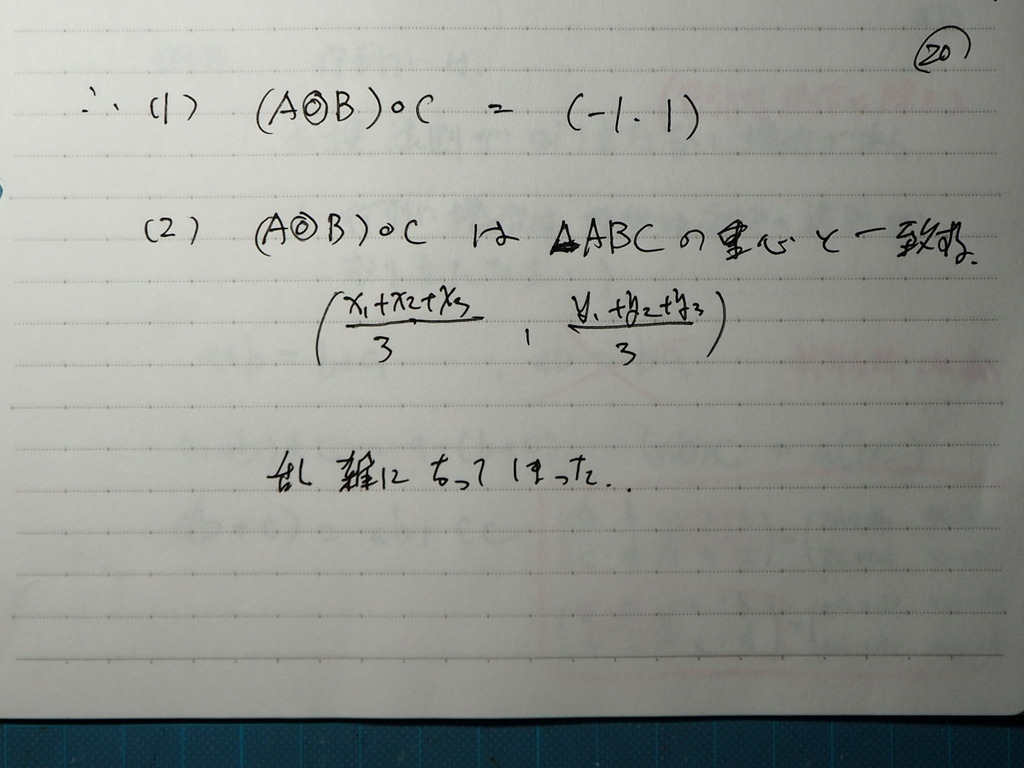 ⑳
∴ (1) (A◎B)∘C = (-1. 1)
(2) (A◎B)∘C は △ABCの重心と一致する.
(x₁+x₂+x₃/3 , y₁+y₂+y₃/3)
乱雑になってしまった..